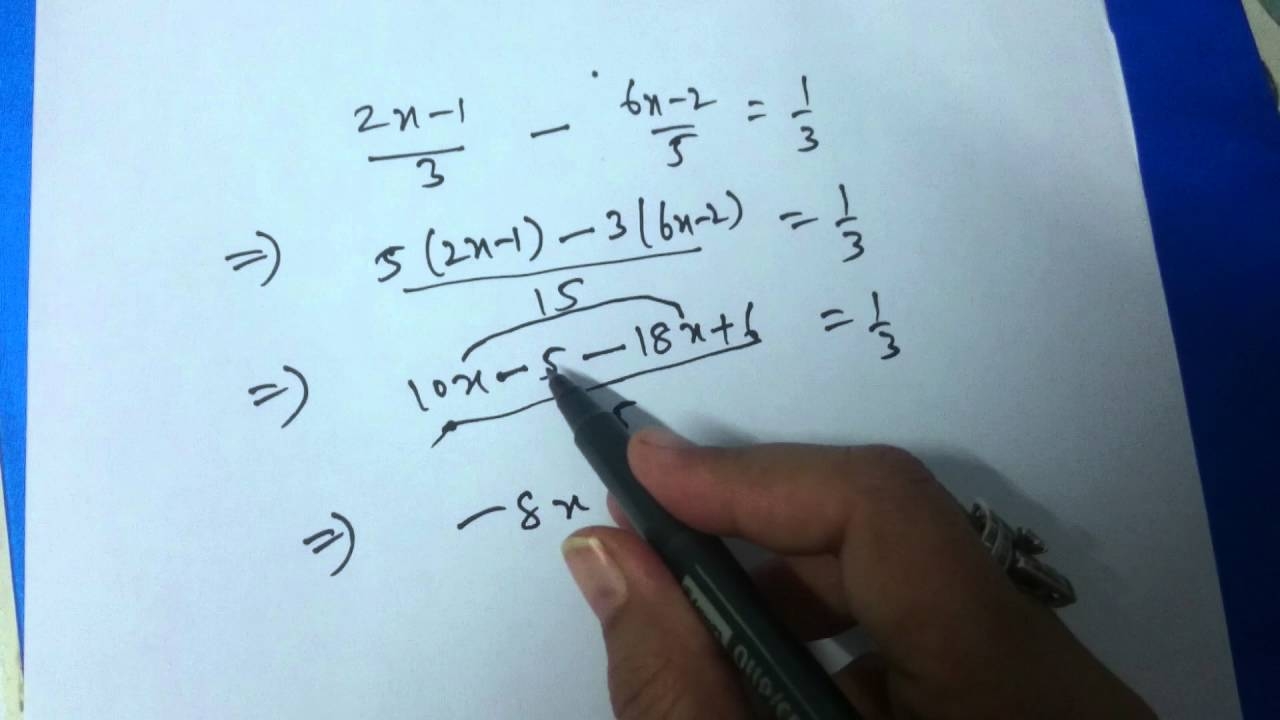 2x-1/3 - 6x-2/5 = 1/3
=> 5(2x-1) - 3(6x-2)/15 = 1/3
=> 10x - 5 - 18x + 6/5 = 1/3
=> -8x